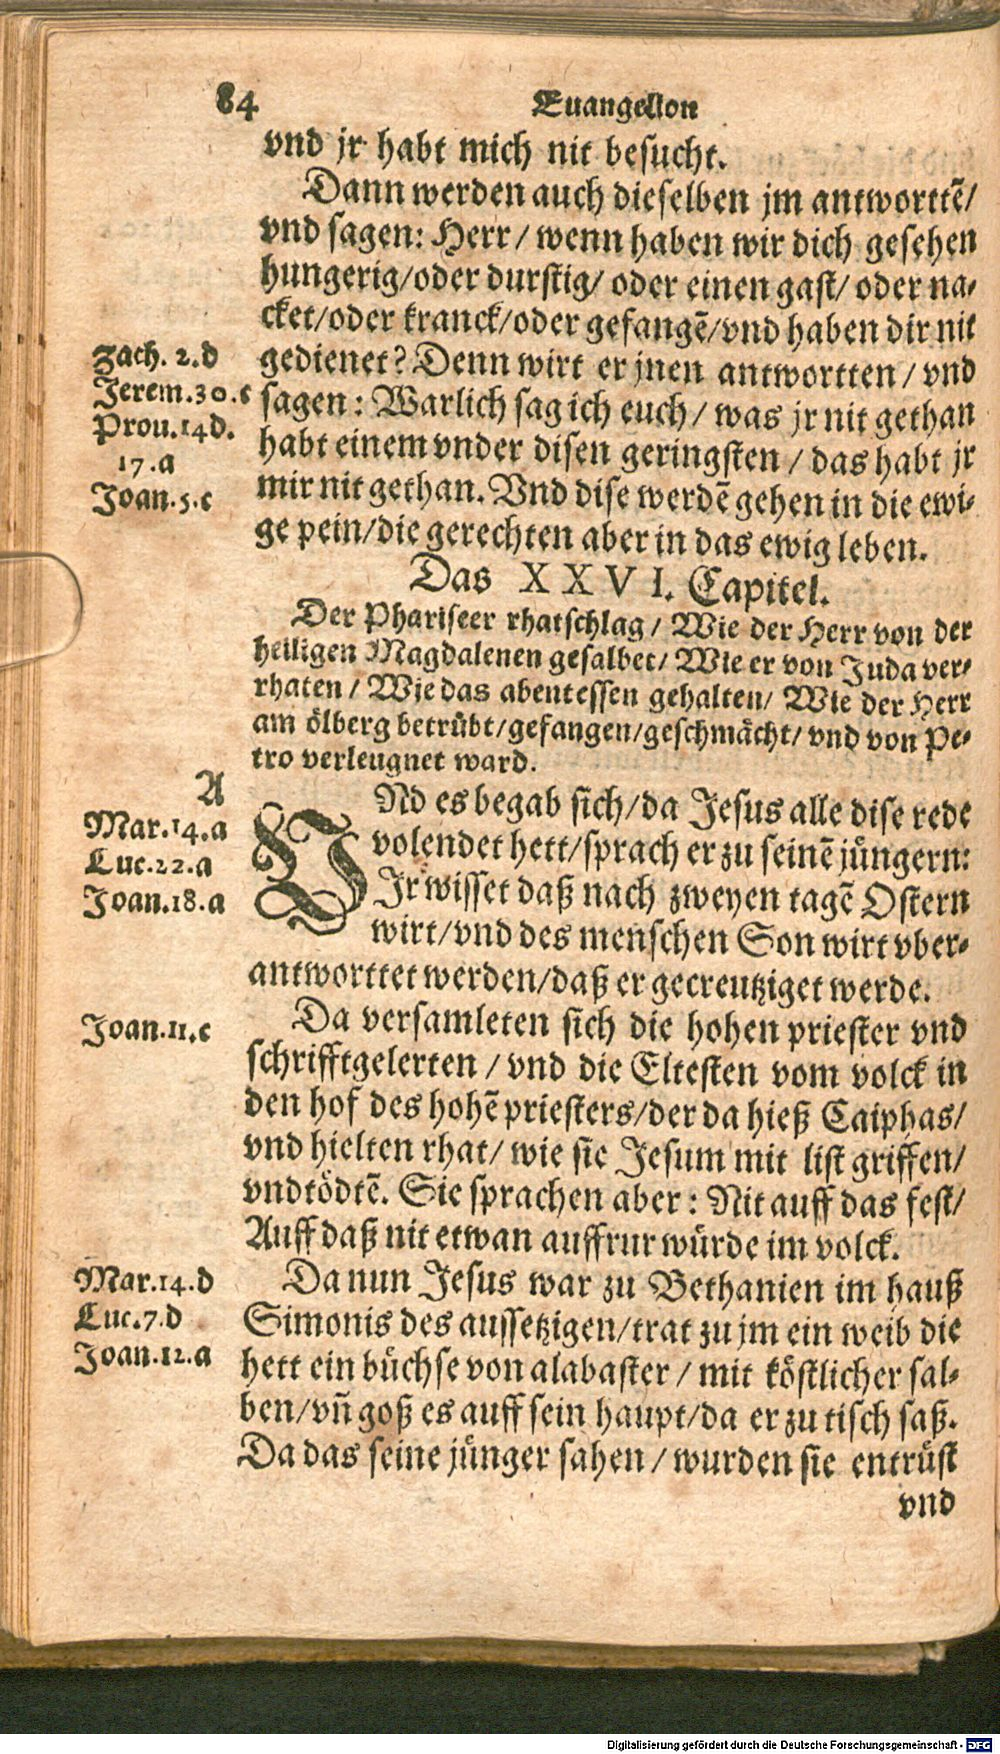 84
Euangelion
vnd jr habt mich nit besucht.
Dann werden auch dieselben jm antworttẽ/
vnd sagen: Herr / wenn haben wir dich gesehen
hungerig/oder durstig/ oder einen gast/ oder na-
cket/oder kranck/oder gefangẽ/vnd haben dir nit
gedienet? Denn wirt er jnen antwortten / vnd
sagen: Warlich sag ich euch / was jr nit gethan
habt einem vnder disen geringsten / das habt jr
mir nit gethan. Vnd dise werdẽ gehen in die ewi-
ge pein/die gerechten aber in das ewig leben.
Zach. 2.d
Jerem.30.c
Prou.14d.
17.a
Joan.5.c
Das XXVI. Capitel.
Der Phariseer rhatschlag / Wie der Herr von der
heiligen Magdalenen gesalbet/ Wie er von Juda ver-
rhaten / Wie das abentessen gehalten/ Wie der Herr
am ölberg betrübt/gefangen/geschmächt/ vnd von Pe-
tro verleugnet ward.
A
Mar.14.a
Luc.22.a
Joan.18.a
VNd es begab sich/da Jesus alle dise rede
volendet hett/sprach er zu seinẽ jüngern:
Ir wisset daß nach zweyen tagẽ Ostern
wirt/vnd des menschen Son wirt vber-
antworttet werden/daß er gecreutziget werde.
Joan.11.c
Da versamleten sich die hohen priester vnd
schrifftgelerten / vnd die Eltesten vom volck in
den hof des hohẽ priesters/der da hieß Caiphas/
vnd hielten rhat/ wie sie Jesum mit list griffen/
vnd tödtẽ. Sie sprachen aber: Nit auff das fest/
Auff daß nit etwan auffrur würde im volck.
Mar.14.d
Luc.7.d
Joan.12.a
Da nun Jesus war zu Bethanien im hauß
Simonis des aussetzigen/trat zu jm ein weib die
hett ein büchse von alabaster / mit köstlicher sal-
ben/vñ goß es auff sein haupt/da er zu tisch saß.
Da das seine jünger sahen / wurden sie entrüst
vnd
Digitalisierung gefördert durch die Deutsche Forschungsgemeinschaft - DFG